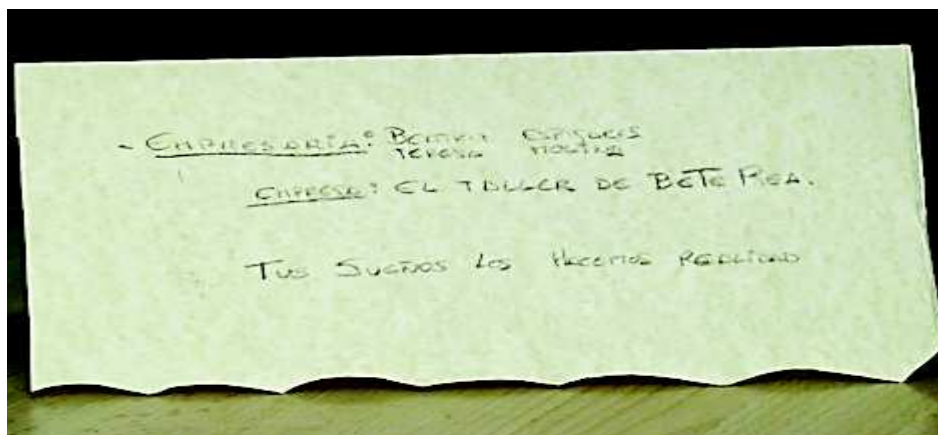 - EMPRESARIA: BEATRIZ
TERESA
EMPRESA: EL TALLER DE BETE REA.
TUS SUEÑOS LOS HACEMOS REALIDAD